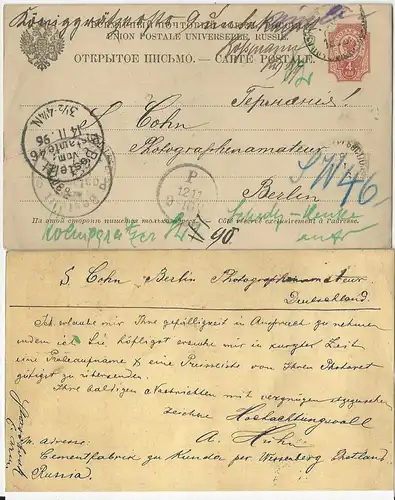 Königgrätzerstr
UNION POSTALE UNIVERSELLE. RUSSIE.
Hoffmann
ОТКРЫТОЕ ПИСЬМО. — CARTE POSTALE.
Германія!
S. Cohn
Photographenamateur
Berlin
SW 46
Bestellt
vom
Postamte 46
14 11 96
3½-4½ N.
P
12 11
На этой сторонѣ пишется только адресъ. Côté réservé exclusivement à l'adresse.
90.
S. Cohn Berlin Photographenamateur
Deutschland.
Ich erlaube mir Ihre gefälligkeit in Anspruch zu nehmen
indem ich Sie höfligst ersuche mir in kurzter Zeit
eine Probeaufnahme & eine Preisliste von Ihren
gütigst zu übersenden.
Ihre baldigen Nachrichten mit vergnügen
zeichne Hochachtungsvoll
A. Huhn
m. adresse:
Cementfabrik zu Kunda per Wesenberg Estland
Russia.